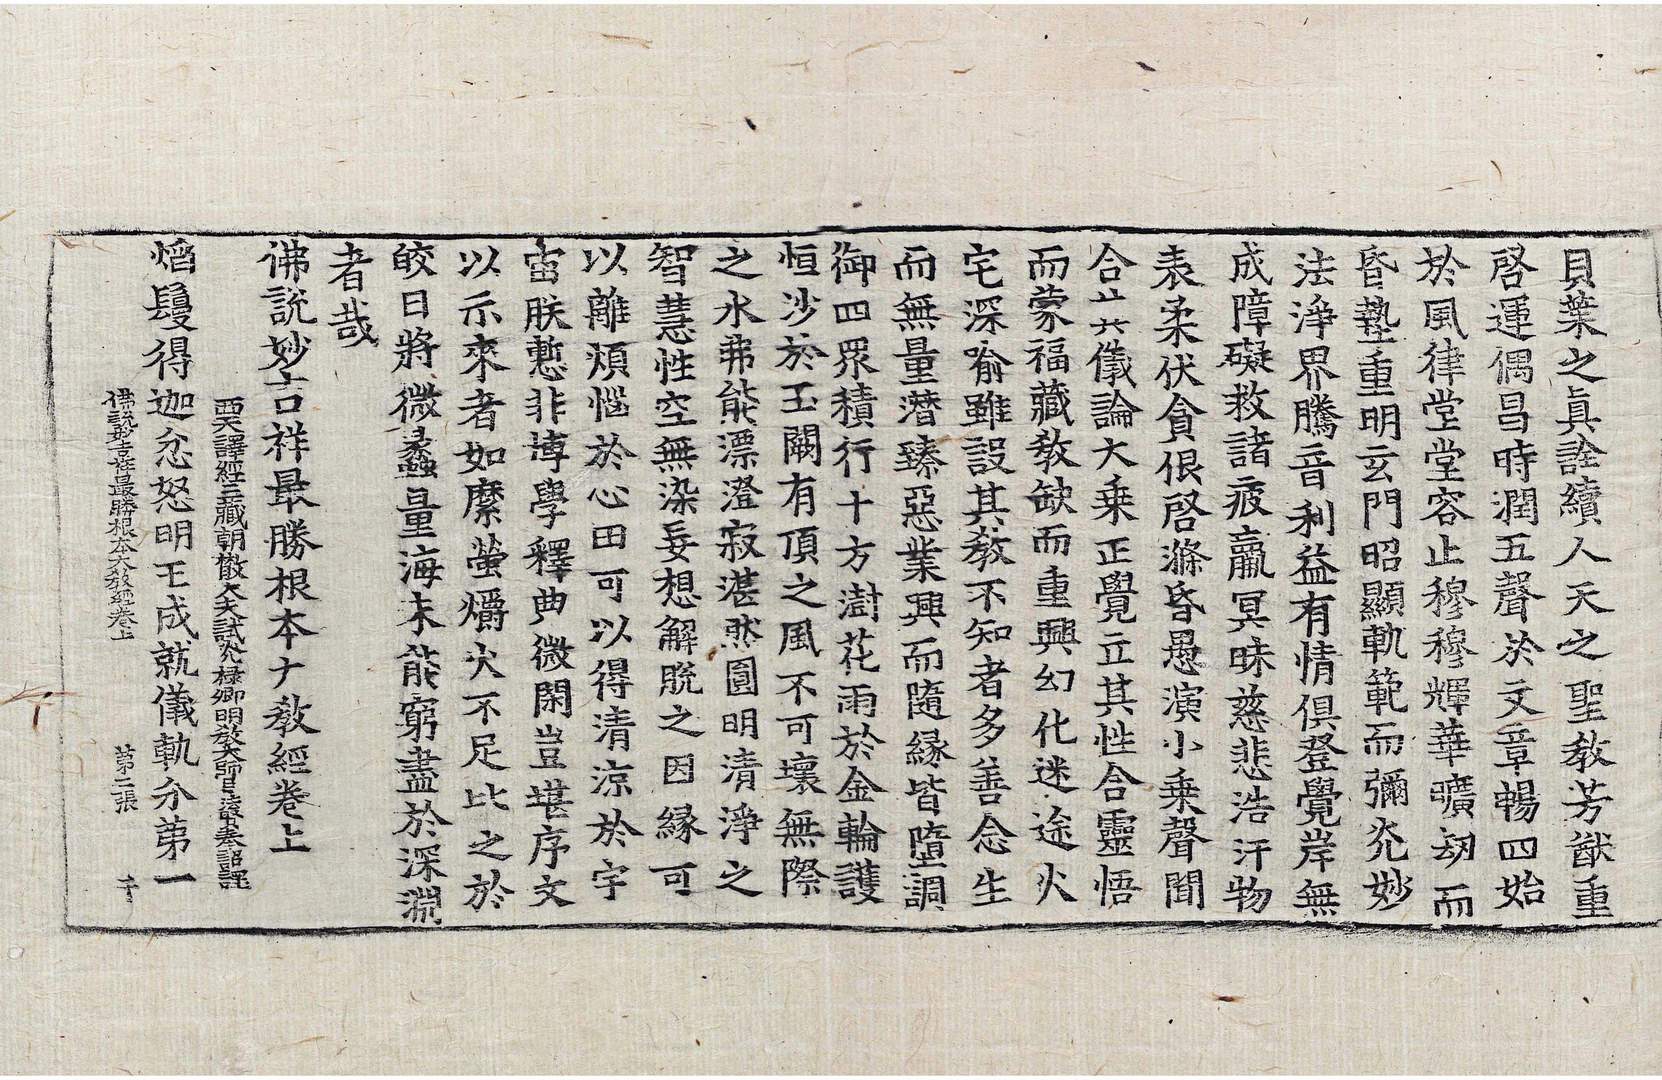 貝葉之眞詮續人天之聖教芳猷重
啓運偶昌時潤五聲於文章暢四始
於風律堂堂容止穆穆輝華曠劫而
昏墊重明玄門昭顯軌範而彌光妙
法淨界騰音利益有情俱登覺岸無
成障礙救諸疲羸冥昧慈悲浩汗物
表柔伏貪佷啓滌昏愚演小乗聲聞
合六儀論大乗正覺立其性合靈悟
而蒙福藏教缺而重興幻化迷途火
宅深喻雖設其教不知者多善念生
而無量潜臻惡業興而隨縁皆墮調
御四眾積行十方澍花雨於金輪護
恒沙於玉闕有頂之風不可壞無際
之水弗能漂澄寂湛然圓明清淨之
智慧性空無染妄想解脫之因縁可
以離煩惱於心田可以得清涼於宇
宙朕慙非博學釋典微閑豈堪序文
以示來者如縻螢爝火不足比之於
皎日將微蠡量海未能窮盡於深淵
者哉
佛說妙吉祥最勝根本大教經卷上
西天譯經三藏朝散大夫試光禄卿明教大師臣法賢奉詔譯
焰鬘得迦忿怒明王成就儀軌分第一
佛說妙吉祥最勝根本大教經卷上 第二張